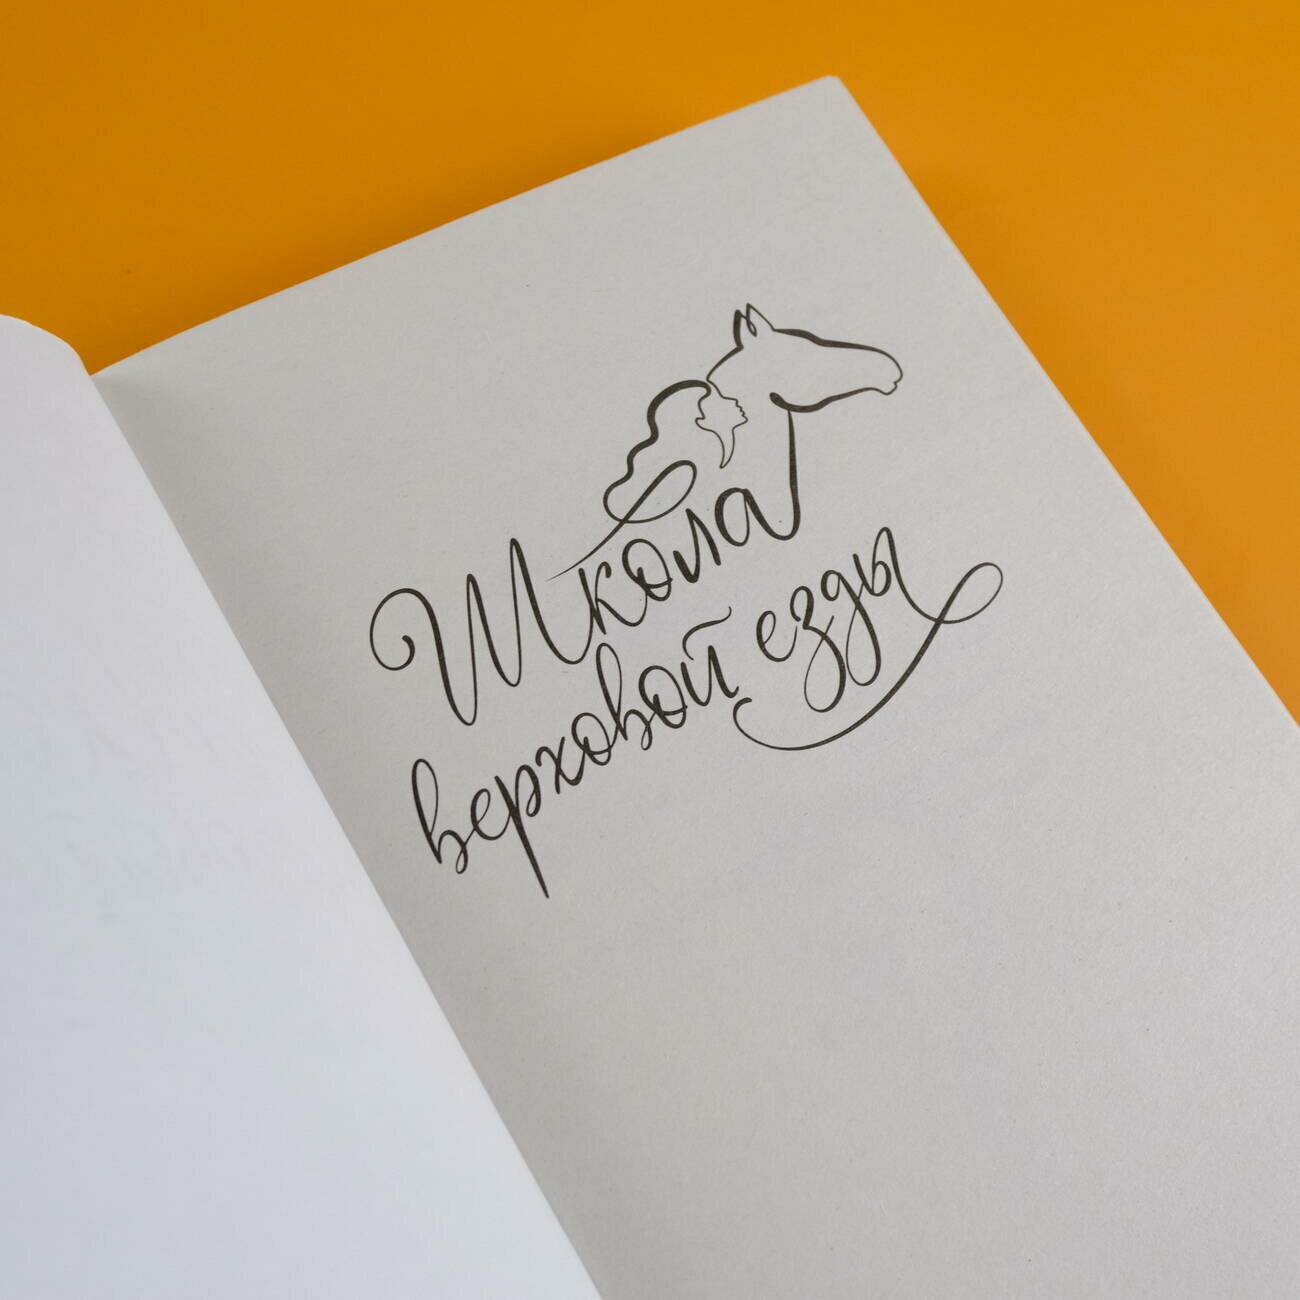 Школа
верховой езды